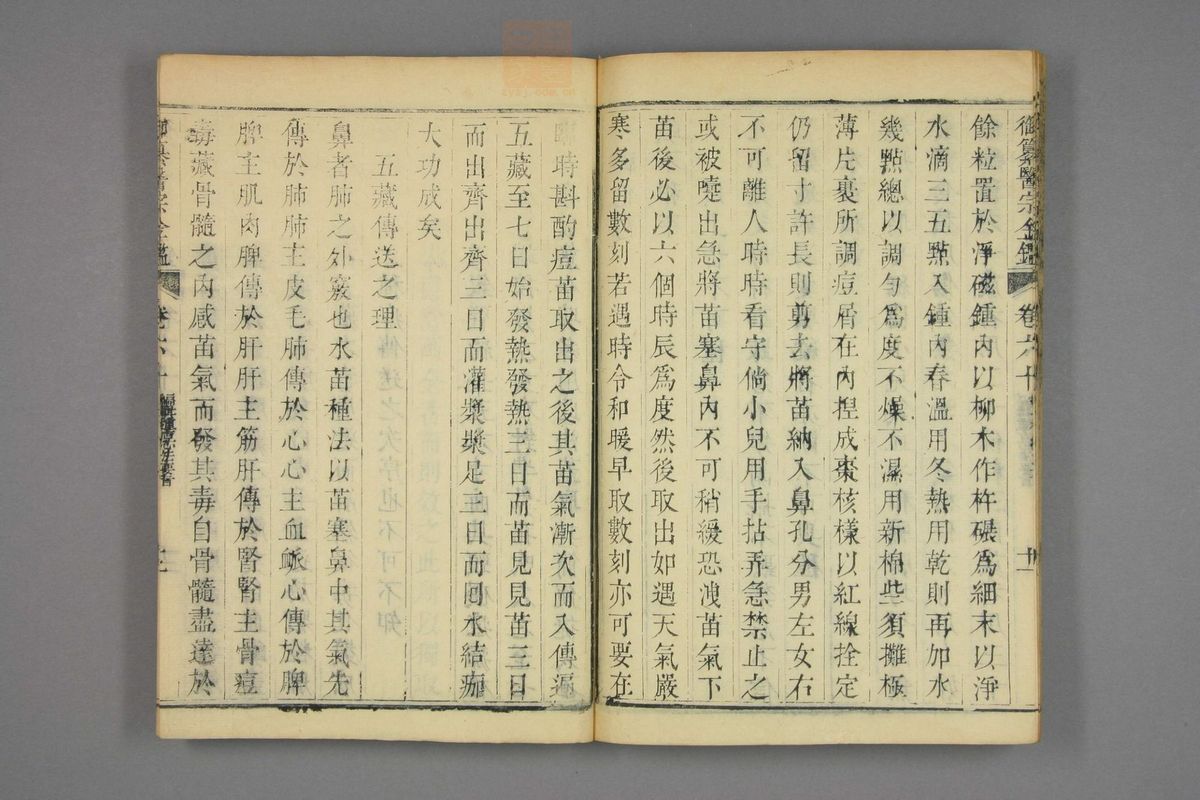 御纂醫宗金鑑 卷六十
餘粒置於淨磁鍾內以柳木作杵碾爲細末以淨
水滴三五點入鍾內春溫用冬熱用乾則再加水
幾點總以調勻爲度不燥不濕用新棉些須攤極
薄片裹所調痘屑在內捏成棗核樣以紅線拴定
仍留寸許長則剪去將苗納入鼻孔分男左女右
不可離人時時看守倘小兒用手拈弄急禁止之
或被嚏出急將苗塞鼻內不可稍緩恐洩苗氣下
苗後必以六個時辰爲度然後取出如遇天氣嚴
寒多留數刻若遇時令和暖早取數刻亦可要在
臨時斟酌痘苗取出之後其苗氣漸次而入傳遍
五藏至七日始發熱發熱三日而苗見見苗三日
而出齊出齊三日而灌漿漿足三日而回水結痂
大功成矣
五藏傳送之理
鼻者肺之外竅也水苗種法以苗塞鼻中其氣先
傳於肺肺主皮毛肺傳於心心主血脈心傳於脾
脾主肌肉脾傳於肝肝主筋肝傳於腎腎主骨痘
毒藏骨髓之內感苗氣而發其毒自骨髓盡達於
御纂醫宗金鑑 卷六十